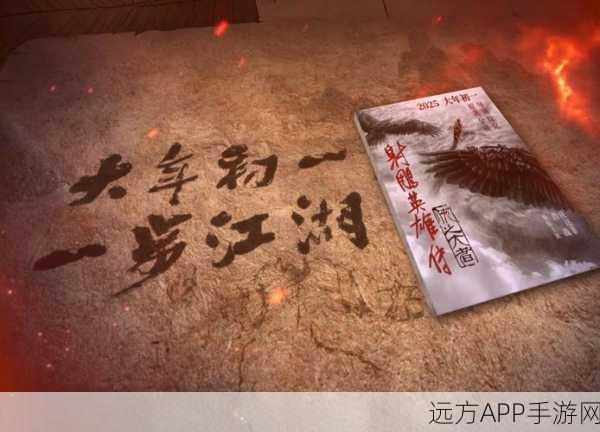 大年初一
一步江湖
2025 大年初一
射雕英雄传
侠之大者
远方APP手游网